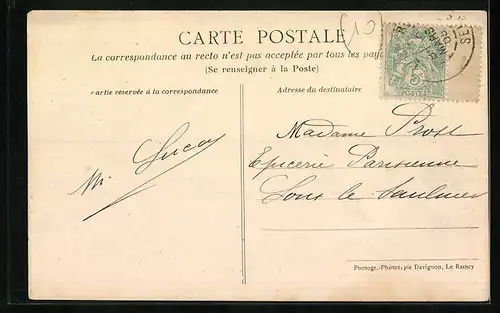 (10)
CARTE POSTALE
La correspondance au recto n'est pas acceptée par tous les pays
(Se renseigner à la Poste)
Partie réservée à la correspondance
Adresse du destinataire
5
POSTES
Madame Prost
Epicerie Parisienne
Lons le Saulnier
Photogr.-Phototypie Davignon, Le Raincy